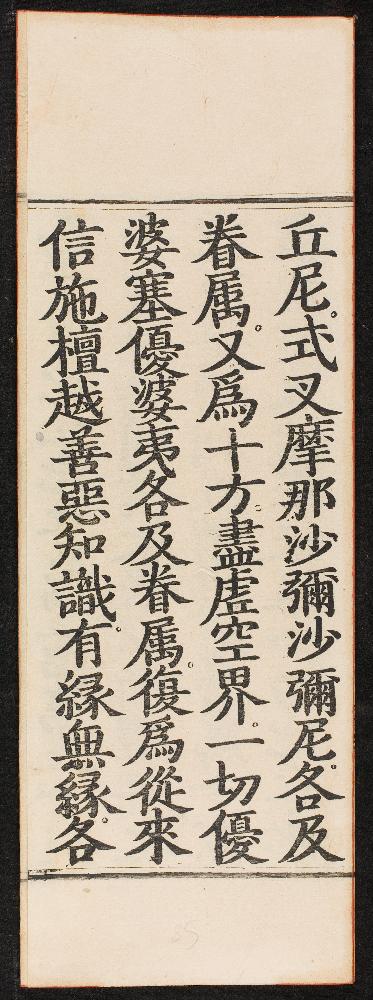 丘尼。式叉摩那沙彌沙彌尼。各及
眷属。又爲十方盡虚空界。一切優
婆塞優婆夷各及眷属。復爲從來
信施檀越善惡知識。有縁無縁。各